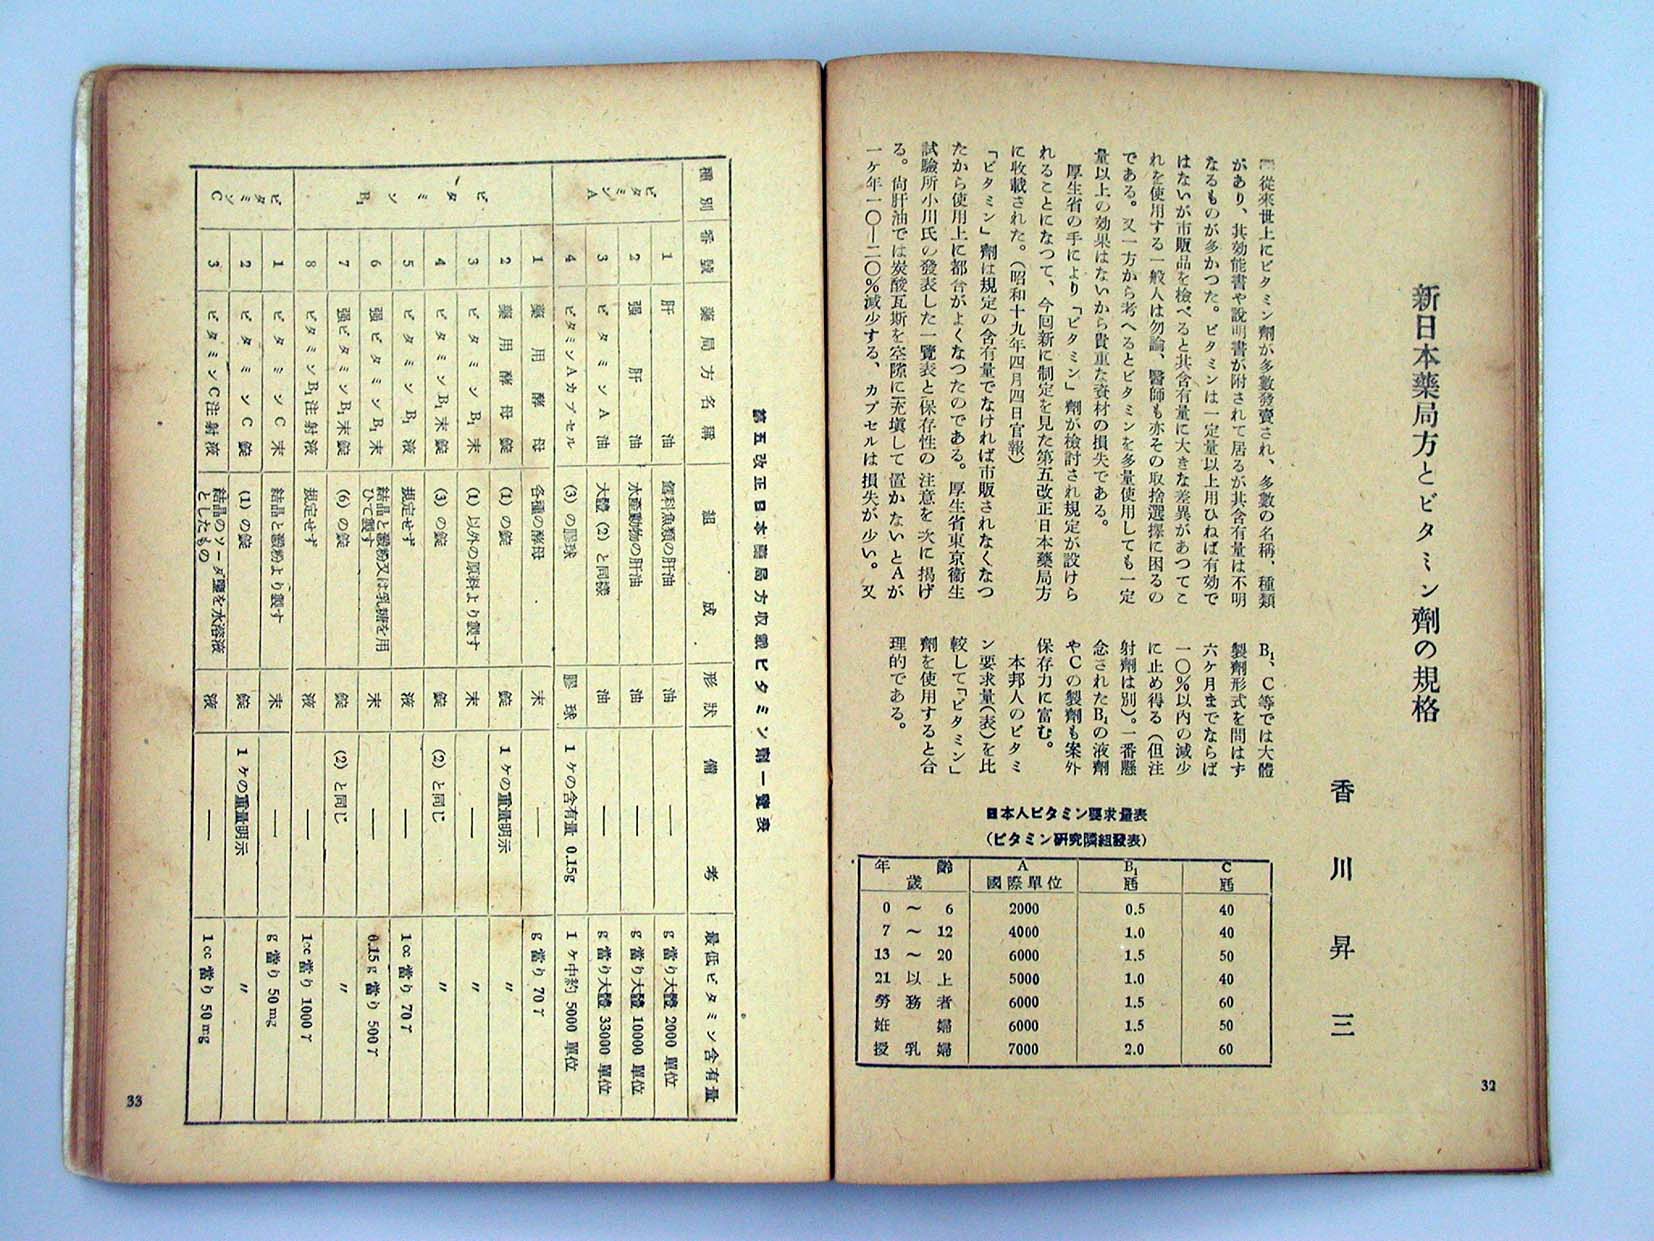 新日本藥局方とビタミン劑の規格
香川昇三
從來世上にビタミン劑が多數發賣され、多數の名稱、種類
があり、其効能書や說明書が附されて居るが其含有量は不明
なるものが多かつた。ビタミンは一定量以上用ひねば有効で
はないが市販品を檢べると其含有量に大きな差異があつてこ
れを使用する一般人は勿論、醫師も亦その取捨選擇に困るの
である。又一方から考へるとビタミンを多量使用しても一定
量以上の効果はないから貴重な資材の損失である。
厚生省の手により「ビタミン」劑が檢討され規定が設けら
れることになつて、今回新に制定を見た第五改正日本藥局方
に收載された。（昭和十九年四月四日官報）
「ビタミン」劑は規定の含有量でなければ市販されなくなつ
たから使用上に都合がよくなつたのである。厚生省東京衞生
試驗所小川氏の發表した一覽表と保存性の注意を次に揭げ
る。尙肝油では炭酸瓦斯を空隙に充塡して置かないとAが
一ヶ年一〇—二〇％減少する、カプセルは損失が少い。又
B₁、C等では大體
製劑形式を問はず
六ヶ月までならば
一〇％以內の減少
に止め得る（但注
射劑は別）。一番懸
念されたB₁の液劑
やCの製劑も案外
保存力に富む。
本邦人のビタミ
ン要求量（表）を比
較して「ビタミン」
劑を使用すると合
理的である。
日本人ビタミン要求量表
（ビタミン研究隣組發表）
年齡 歲 A 國際單位 B₁ 瓱 C 瓱
0 〜 6 2000 0.5 40
7 〜 12 4000 1.0 40
13 〜 20 6000 1.5 50
21 以上 5000 1.0 40
勞務者 6000 1.5 60
姙婦 6000 1.5 50
授乳婦 7000 2.0 60
32
第五改正日本藥局方收載ビタミン劑一覽表
種別 番號 藥局方名稱 組成 形狀 備考 最低ビタミン含有量
ビタミンA
1 肝油 鱈科魚類の肝油 油 — g 當り大體 2000 單位
2 强肝油 水產動物の肝油 油 — g 當り大體 10000 單位
3 ビタミンA油 大體 (2) と同樣 油 — g 當り大體 33000 單位
4 ビタミンAカプセル (3) の膠球 膠球 1ヶの含有量 0.15g 1ヶ中約 5000 單位
ビタミンB₁
1 藥用酵母 各種の酵母 末 — g 當り 70γ
2 藥用酵母錠 (1) の錠 錠 1ヶの重量明示 〃
3 ビタミンB₁末 (1) 以外の原料より製す 末 — 〃
4 ビタミンB₁末錠 (3) の錠 錠 (2) と同じ 〃
5 ビタミンB₁液 規定せず 液 — 1cc 當り 70γ
6 强ビタミンB₁末 結晶と澱粉又は乳糖を用ひて製す 末 — 0.15g 當り 500γ
7 强ビタミンB₁末錠 (6) の錠 錠 (2) と同じ 〃
8 ビタミンB₁注射液 規定せず 液 — 1cc 當り 1000γ
ビタミンC
1 ビタミンC末 結晶と澱粉より製す 末 — g 當り 50mg
2 ビタミンC錠 (1) の錠 錠 1ヶの重量明示 〃
3 ビタミンC注射液 結晶のソーダ鹽を水溶液としたもの 液 — 1cc 當り 50mg
33